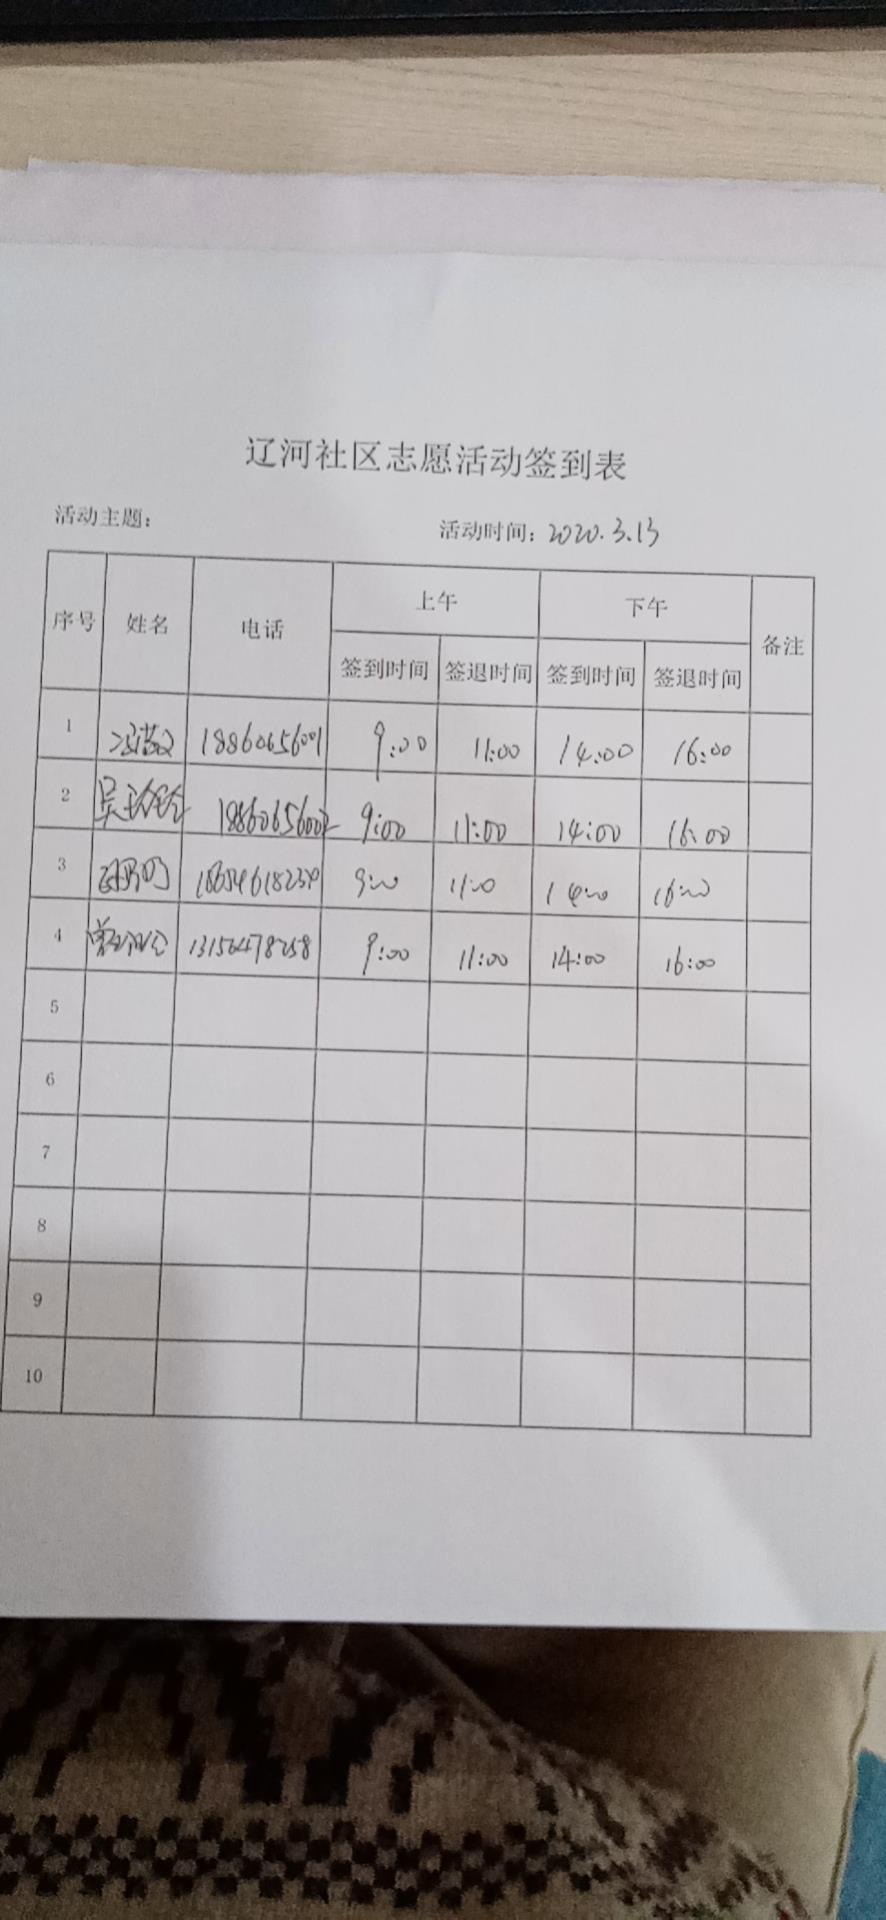 辽河社区志愿活动签到表
活动主题: 活动时间: 2020.3.13
序号 姓名 电话 上午 下午 备注
签到时间 签退时间 签到时间 签退时间
1 18860656001 9:00 11:00 14:00 16:00
2 吴玲玲 18860656002 9:00 11:00 14:00 16:00
3 9:00 11:00 14:00 16:00
4 9:00 11:00 14:00 16:00
5
6
7
8
9
10